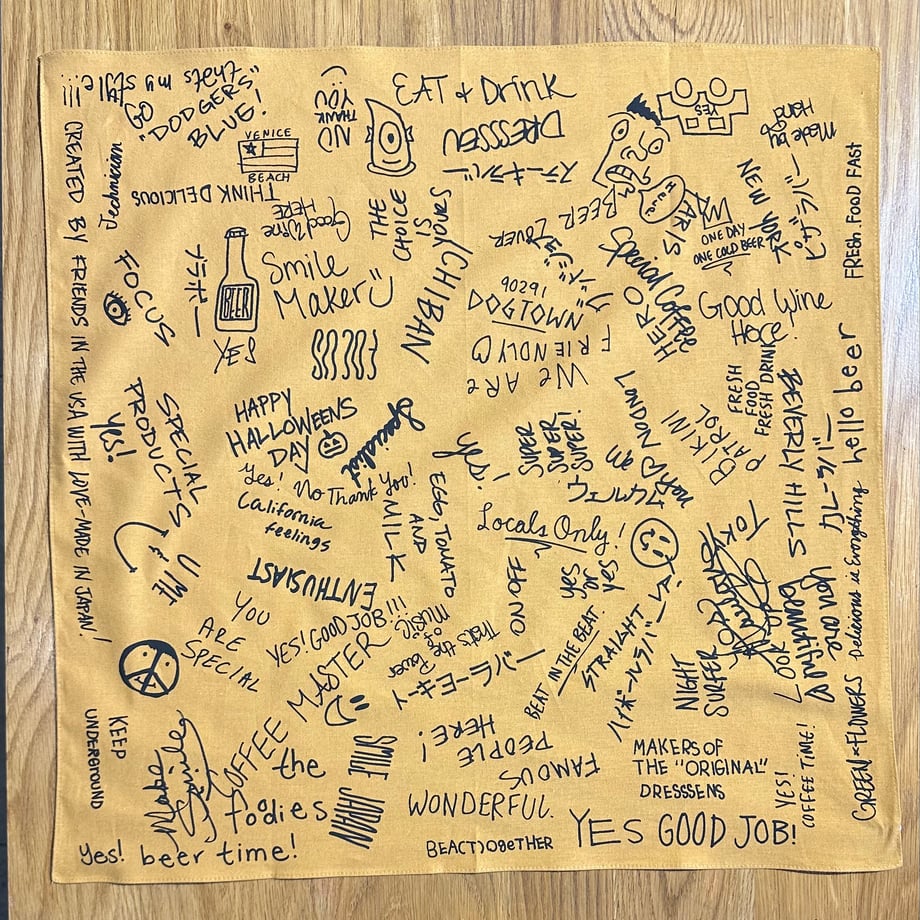 thats my style!!!
GO
"DODGERS"
BLUE!
NO
THANK
YOU
EAT & Drink
YES
Made by
Hand
VENICE
BEACH
DRESSSEN
ステーキラバー
Technician
THINK DELICIOUS
Good Wine
HERE
THE
CHOICE
IS
YOURS
BEER LOVER
HELP
PARIS
ONE DAY
ONE COLD BEER
NEW YORK
ピザラバー
FRESH FOOD FAST
CREATED BY FRIENDS IN THE USA WITH LOVE-MADE IN JAPAN!
FOCUS
ブラボー
BEER
YES
Smile
Maker
ICHIBAN
90291
DOGTOWN
Special Coffee
HERO
Good Wine
Hace.
FOCUS
WE ARE
FRIENDLY
HAPPY
HALLOWEENS
DAY
Specialist
Yes! No Thank You!
California
feelings
MILK
EGG, TOMATO
AND
yes!
SUPER
SUPER
SUPER!
LONDON
BIKINI
PATROL
FRESH
FOOD
FRESH DRINK
BEVERLY HILLS
hello beer
SPECIAL
PRODUCTS
YES!
U & ME
Locals Only!
TOKYO
カレーラバー
Delicious is Everything
ENTHUSIAST
YOU
ARE
SPECIAL
YES! GOOD JOB!!!
That's the
Power
of
Music
HONO
yes
or
yes
BEAT IN THE BEAT.
STRAIGHT
ハイボールラバー
NIGHT
SURFER
You are
beautiful
LOOK
COFFEE MASTER
KEEP
UNDERGROUND
Make
Smile
the
foodies
SMILE JAPAN
FAMOUS
PEOPLE
HERE!
MAKERS OF
THE "ORIGINAL"
DRESSSENS
YES!
COFFEE TIME!
GREEN & FLOWERS
WONDERFUL.
Yes! beer time!
BEACTTOGETHER
YES GOOD JOB!